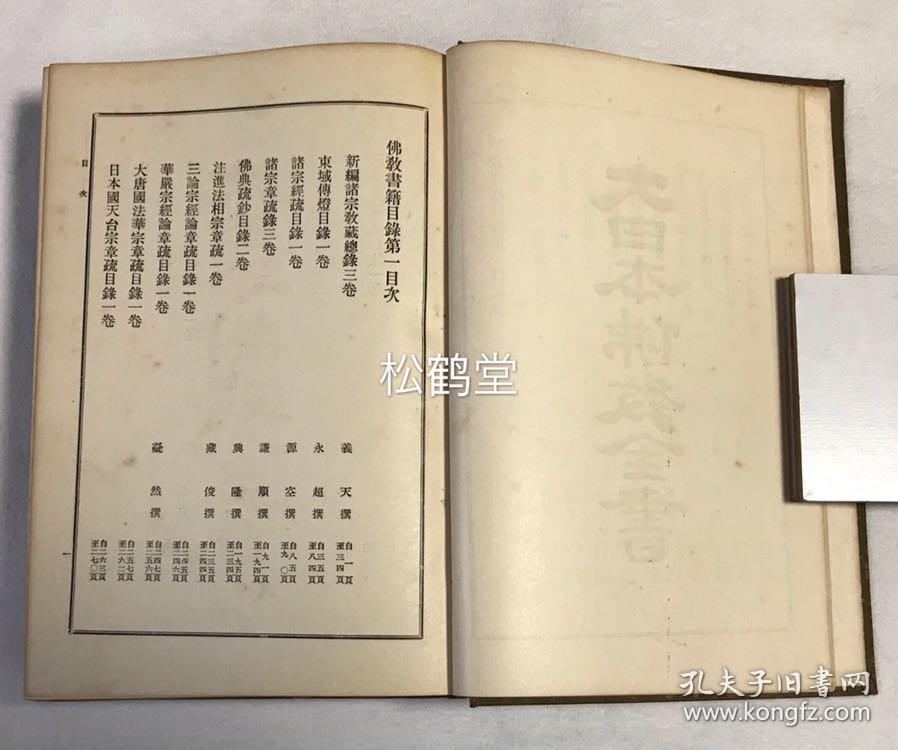 佛教書籍目錄第一目次
新編諸宗教藏總錄三卷 義天撰 自一頁至三四頁
東域傳燈目錄一卷 永超撰 自三五頁至八四頁
諸宗經疏目錄一卷 源空撰 自八五頁至九〇頁
諸宗章疏錄三卷 謙順撰 自九一頁至一九四頁
佛典疏鈔目錄二卷 興隆撰 自一九五頁至二三四頁
注進法相宗章疏一卷 藏俊撰 自二三五頁至二四四頁
三論宗經論章疏目錄一卷 自二四五頁至二四六頁
華嚴宗經論章疏目錄一卷 凝然撰 自二四七頁至二五六頁
大唐國法華宗章疏目錄一卷 自二五七頁至二六二頁
日本國天台宗章疏目錄一卷 自二六三頁至二七〇頁
目次
一
大日本佛教全書
松鹤堂
孔夫子旧书网
www.kongfz.com